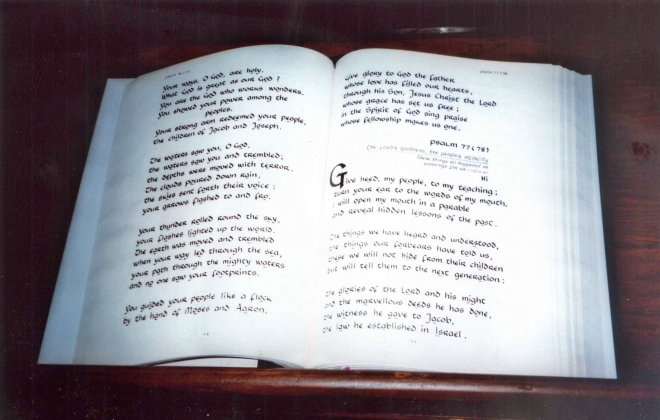 Your ways, O God, are holy.
What God is great as our God?
You are the God who works wonders.
You showed your power among the
peoples.
Your strong arm redeemed your people,
the children of Jacob and Joseph.
The waters saw you, O God,
the waters saw you and trembled;
the depths were moved with terror.
The clouds poured down rain,
the skies sent forth their voice;
your arrows flashed to and fro.
Your thunder rolled round the sky,
your flashes lighted up the world.
The earth was moved and trembled
when your way led through the sea,
your path through the mighty waters
and no one saw your footprints.
You guided your people like a flock
by the hand of Moses and Aaron.
Give glory to God the father
whose love has filled our hearts,
through his Son, Jesus Christ the Lord
whose grace has set us free;
in the Spirit of God sing praise
whose fellowship makes us one.
psalm 77 (78)
The Lord's goodness, the people's infidelity
These things all happened as
Hi
Give heed, my people, to my teaching;
turn your ear to the words of my mouth.
I will open my mouth in a parable
and reveal hidden lessons of the past.
The things we have heard and understood,
the things our forbears have told us,
these we will not hide from their children
but will tell them to the next generation:
the glories of the Lord and his might
and the marvellous deeds he has done,
the witness he gave to Jacob,
the law he established in Israel.